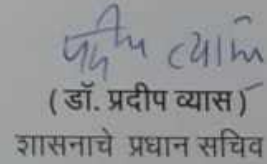 (डॉ. प्रदीप व्यास)
शासनाचे प्रधान सचिव